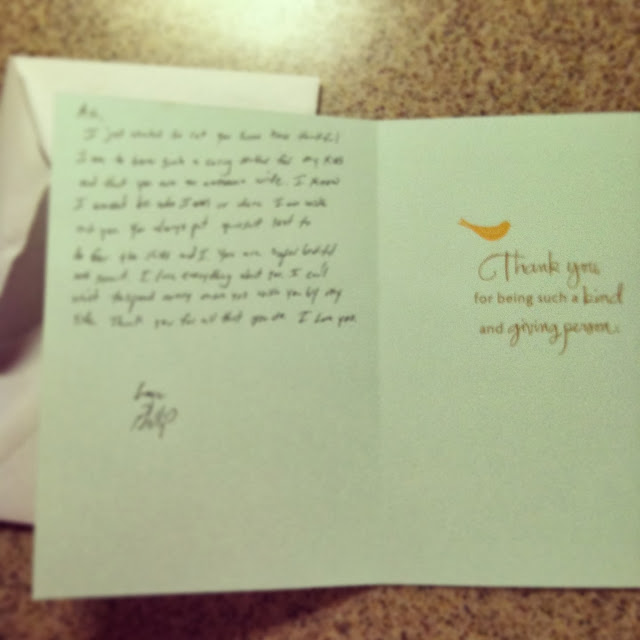 I just wanted to let you know how thankful
I am to have such a caring mother for my kids
and that you are an awesome wife. I know
I would not be who I am or where I am with
out you. You always put yourself last to
do for the kids and I. You are
and sweet. I love everything about you. I can't
by my
side. Thank you for all that you do. I love you.
Love
Philip
Thank you
for being such a kind
and giving person.